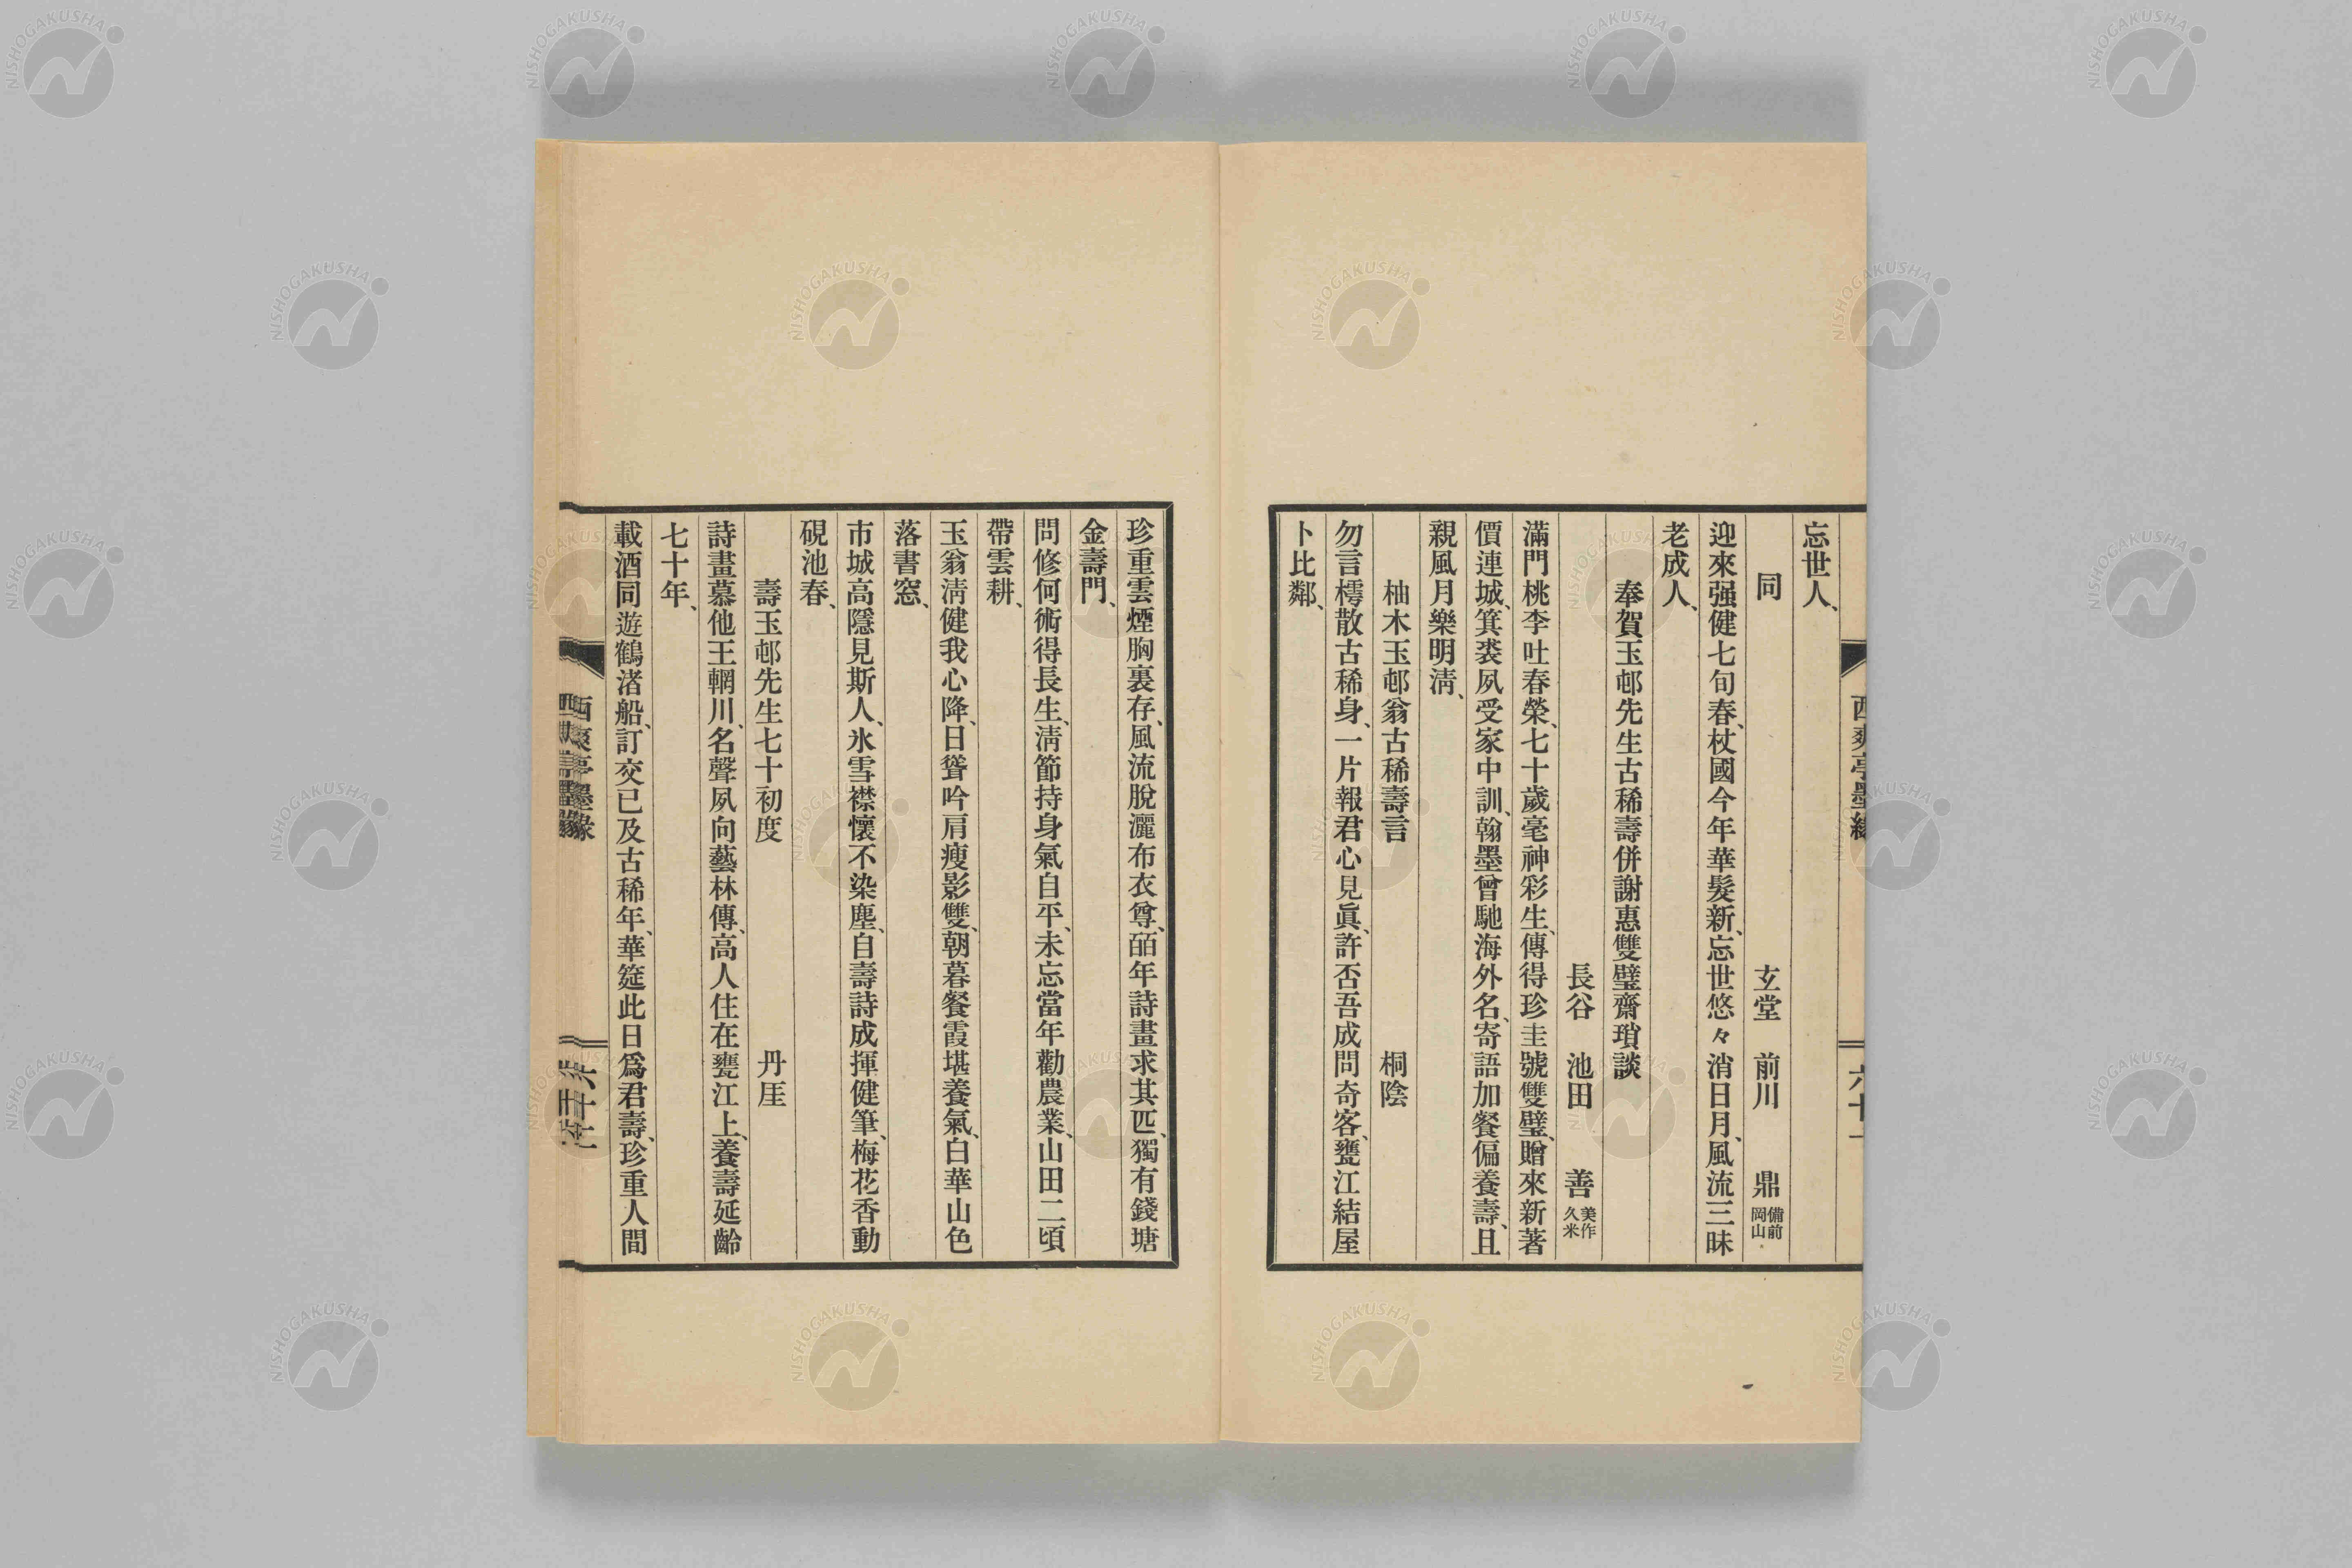 西爽亭墨緣
六十一
忘世人、
同　玄堂　前川　鼎 備前岡山
迎來强健七旬春、杖國今年華髮新、忘世悠々消日月、風流三昧
老成人、
奉賀玉邨先生古稀壽併謝惠雙璧齋瑣談
長谷　池田　善 美作久米
滿門桃李吐春榮、七十歲毫神彩生、傳得珍圭號雙璧、贈來新著
價連城、箕裘夙受家中訓、翰墨曾馳海外名、寄語加餐偏養壽、且
親風月樂明淸、
柚木玉邨翁古稀壽言　桐陰
勿言樗散古稀身、一片報君心見眞、許否吾成問奇客、甕江結屋
卜比鄰、
珍重雲煙胸裏存、風流脫灑布衣尊、皕年詩畫求其匹、獨有錢塘
金壽門、
問修何術得長生、淸節持身氣自平、未忘當年勸農業、山田二頃
帶雲耕、
玉翁淸健我心降、日聳吟肩瘦影雙、朝暮餐霞堪養氣、白華山色
落書窓、
市城高隱見斯人、氷雪襟懷不染塵、自壽詩成揮健筆、梅花香動
硯池春、
壽玉邨先生七十初度　丹厓
詩畫慕他王輞川、名聲夙向藝林傳、高人住在甕江上、養壽延齡
七十年、
載酒同遊鶴渚船、訂交已及古稀年、華筵此日爲君壽、珍重人間
西爽亭墨緣
NISHOGAKUSHA